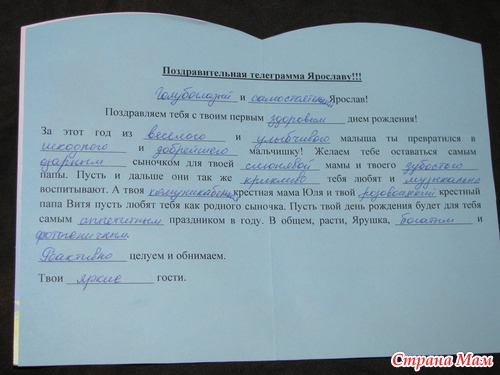 Поздравительная телеграмма Ярославу!!!
Голубоглазый и самостоятельный Ярослав!
Поздравляем тебя с твоим первым здоровым днем рождения!
За этот год из веселого и улыбчивого малыша ты превратился в
шкодного и добрейшего мальчишку! Желаем тебе оставаться самым
ударным сыночком для твоей смешной мамы и твоего зубастого
папы. Пусть и дальше они так же крикливо тебя любят и музыкально
воспитывают. А твоя коммуникабельная крестная мама Юля и твой розовощекий крестный
папа Витя пусть любят тебя как родного сыночка. Пусть твой день рождения будет для тебя
самым аппетитным праздником в году. В общем, расти, Ярушка, богатым и
фотогеничным.
Реактивно целуем и обнимаем.
Твои яркие гости.
Страна Мам